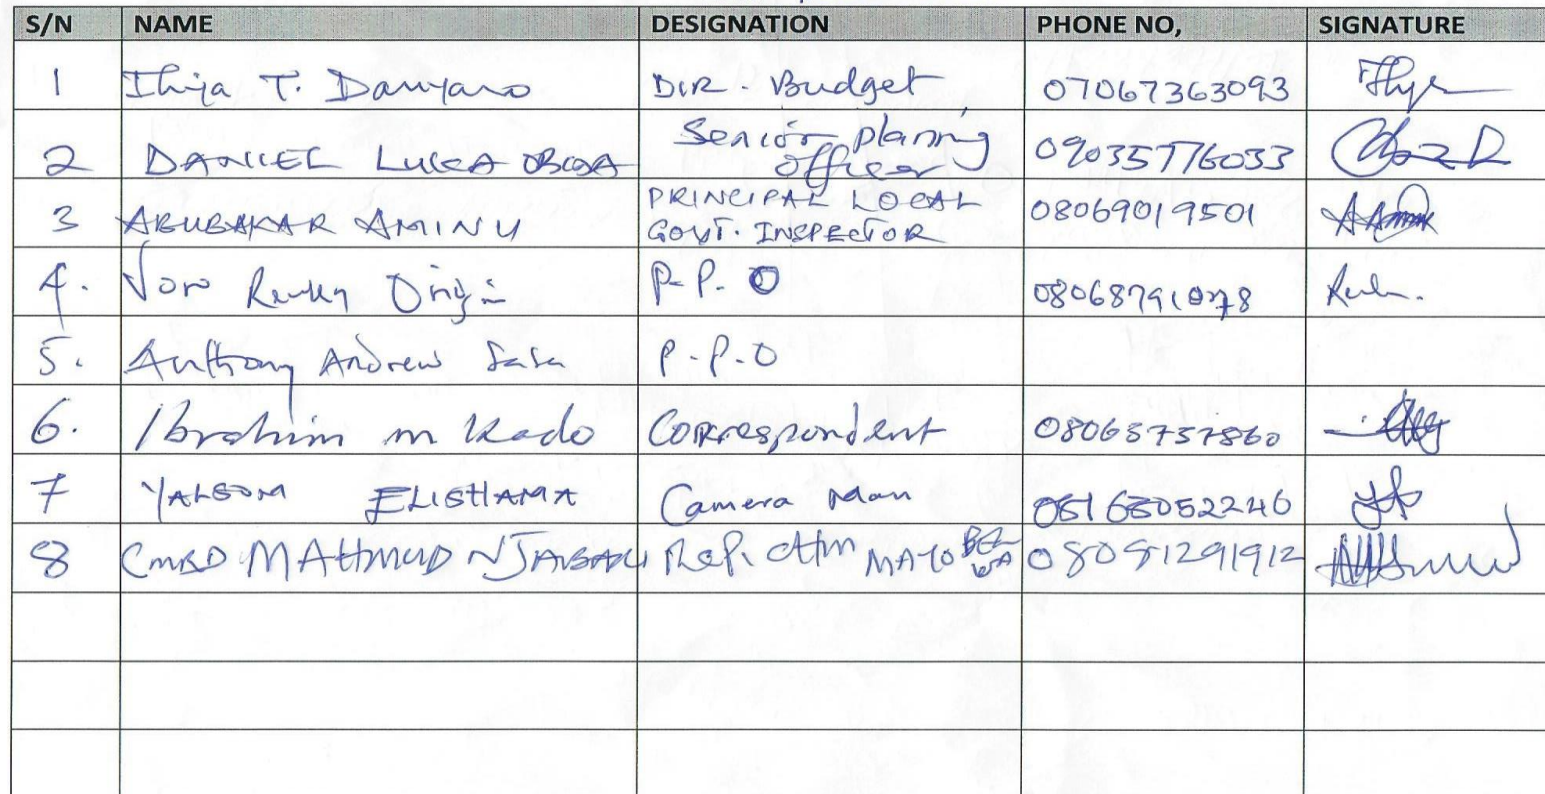 S/N NAME DESIGNATION PHONE NO, SIGNATURE
1 Ihija T. Danyaro DIR. Budget 07067363093
2 DANIEL LUKA Senior planning officer 09035776033
3 ABUBAKAR AMINU PRINCIPAL LOCAL GOVT. INSPECTOR 08069019501
4. P.P.O
5. Anthony Andrew P.P.O
6. Ibrahim m Kado Correspondent 08065757860
7 YALSOM ELISHAMA Camera Man
8 CMRD MAHMUD MAYO BELWA 08081291912